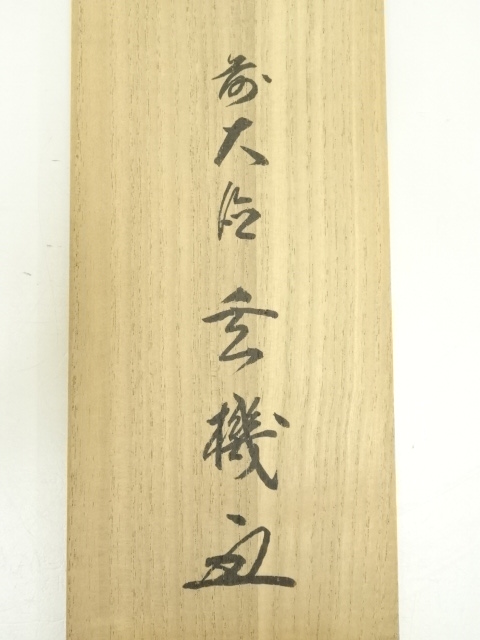 前大徳 玄機